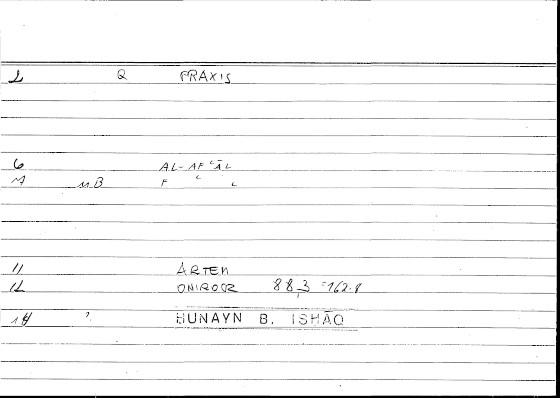 1 Q PRAXIS
6 AL-AFʿĀL
M u.B F ʿ L
11 ARTEM
12 ONIROCR 88,3 = 162.8
14 HUNAYN B. ISHĀQ